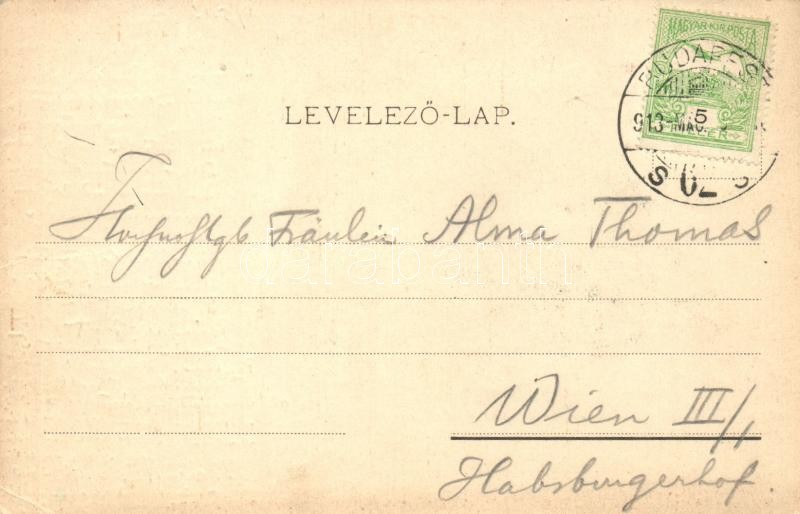 MAGYAR KIR. POSTA
BUDAPEST
LEVELEZŐ-LAP.
5
913-MÁJ.
FILLÉR
62
S S
Fräulein Alma Thomas
darabanth
Wien III/1
Habsburgerhof.